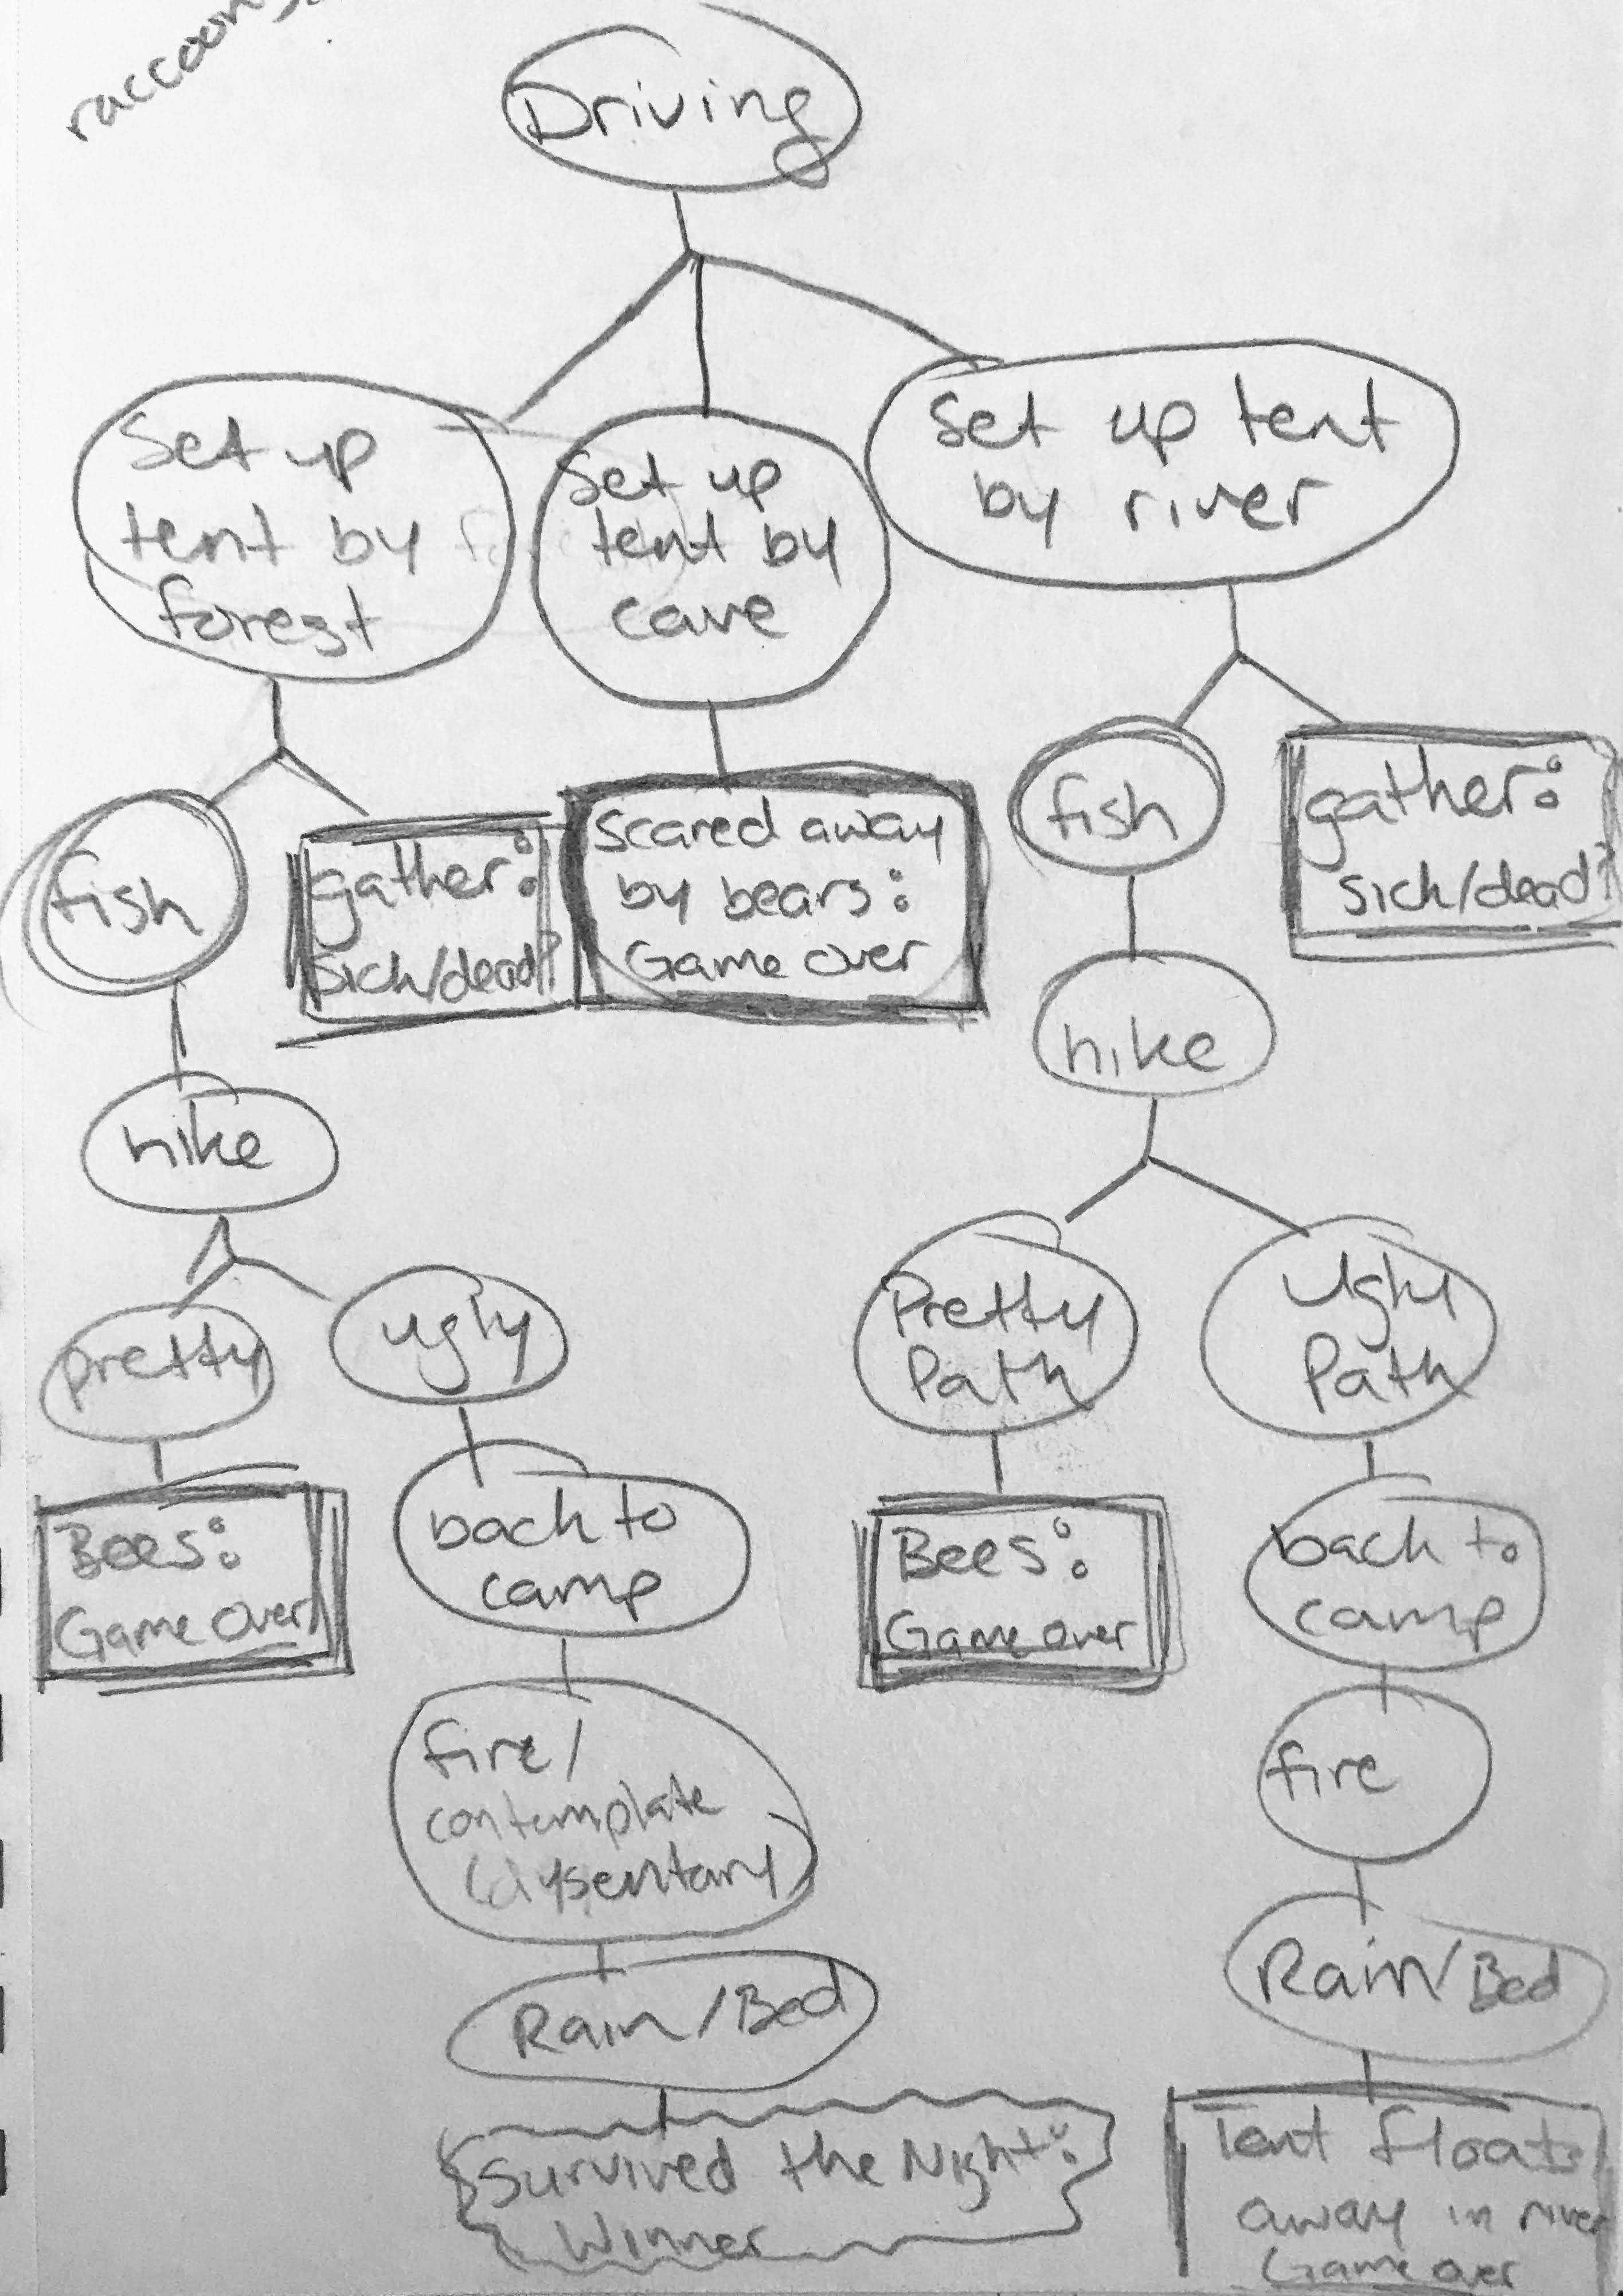 raccoons
Driving
Set up
tent by
forest
Set up
tent by
cave
Set up tent
by river
fish
gather:
sick/dead?
Scared away
by bears:
Game over
fish
gather:
sick/dead?
hike
hike
pretty
ugly
Pretty
Path
Ugly
Path
Bees:
Game over
back to
camp
Bees:
Game over
back to
camp
fire/
contemplate
(dysentary
fire
Rain/Bed
Rain/Bed
Survived the Night:
Winner
Tent floats
away in river
Game over